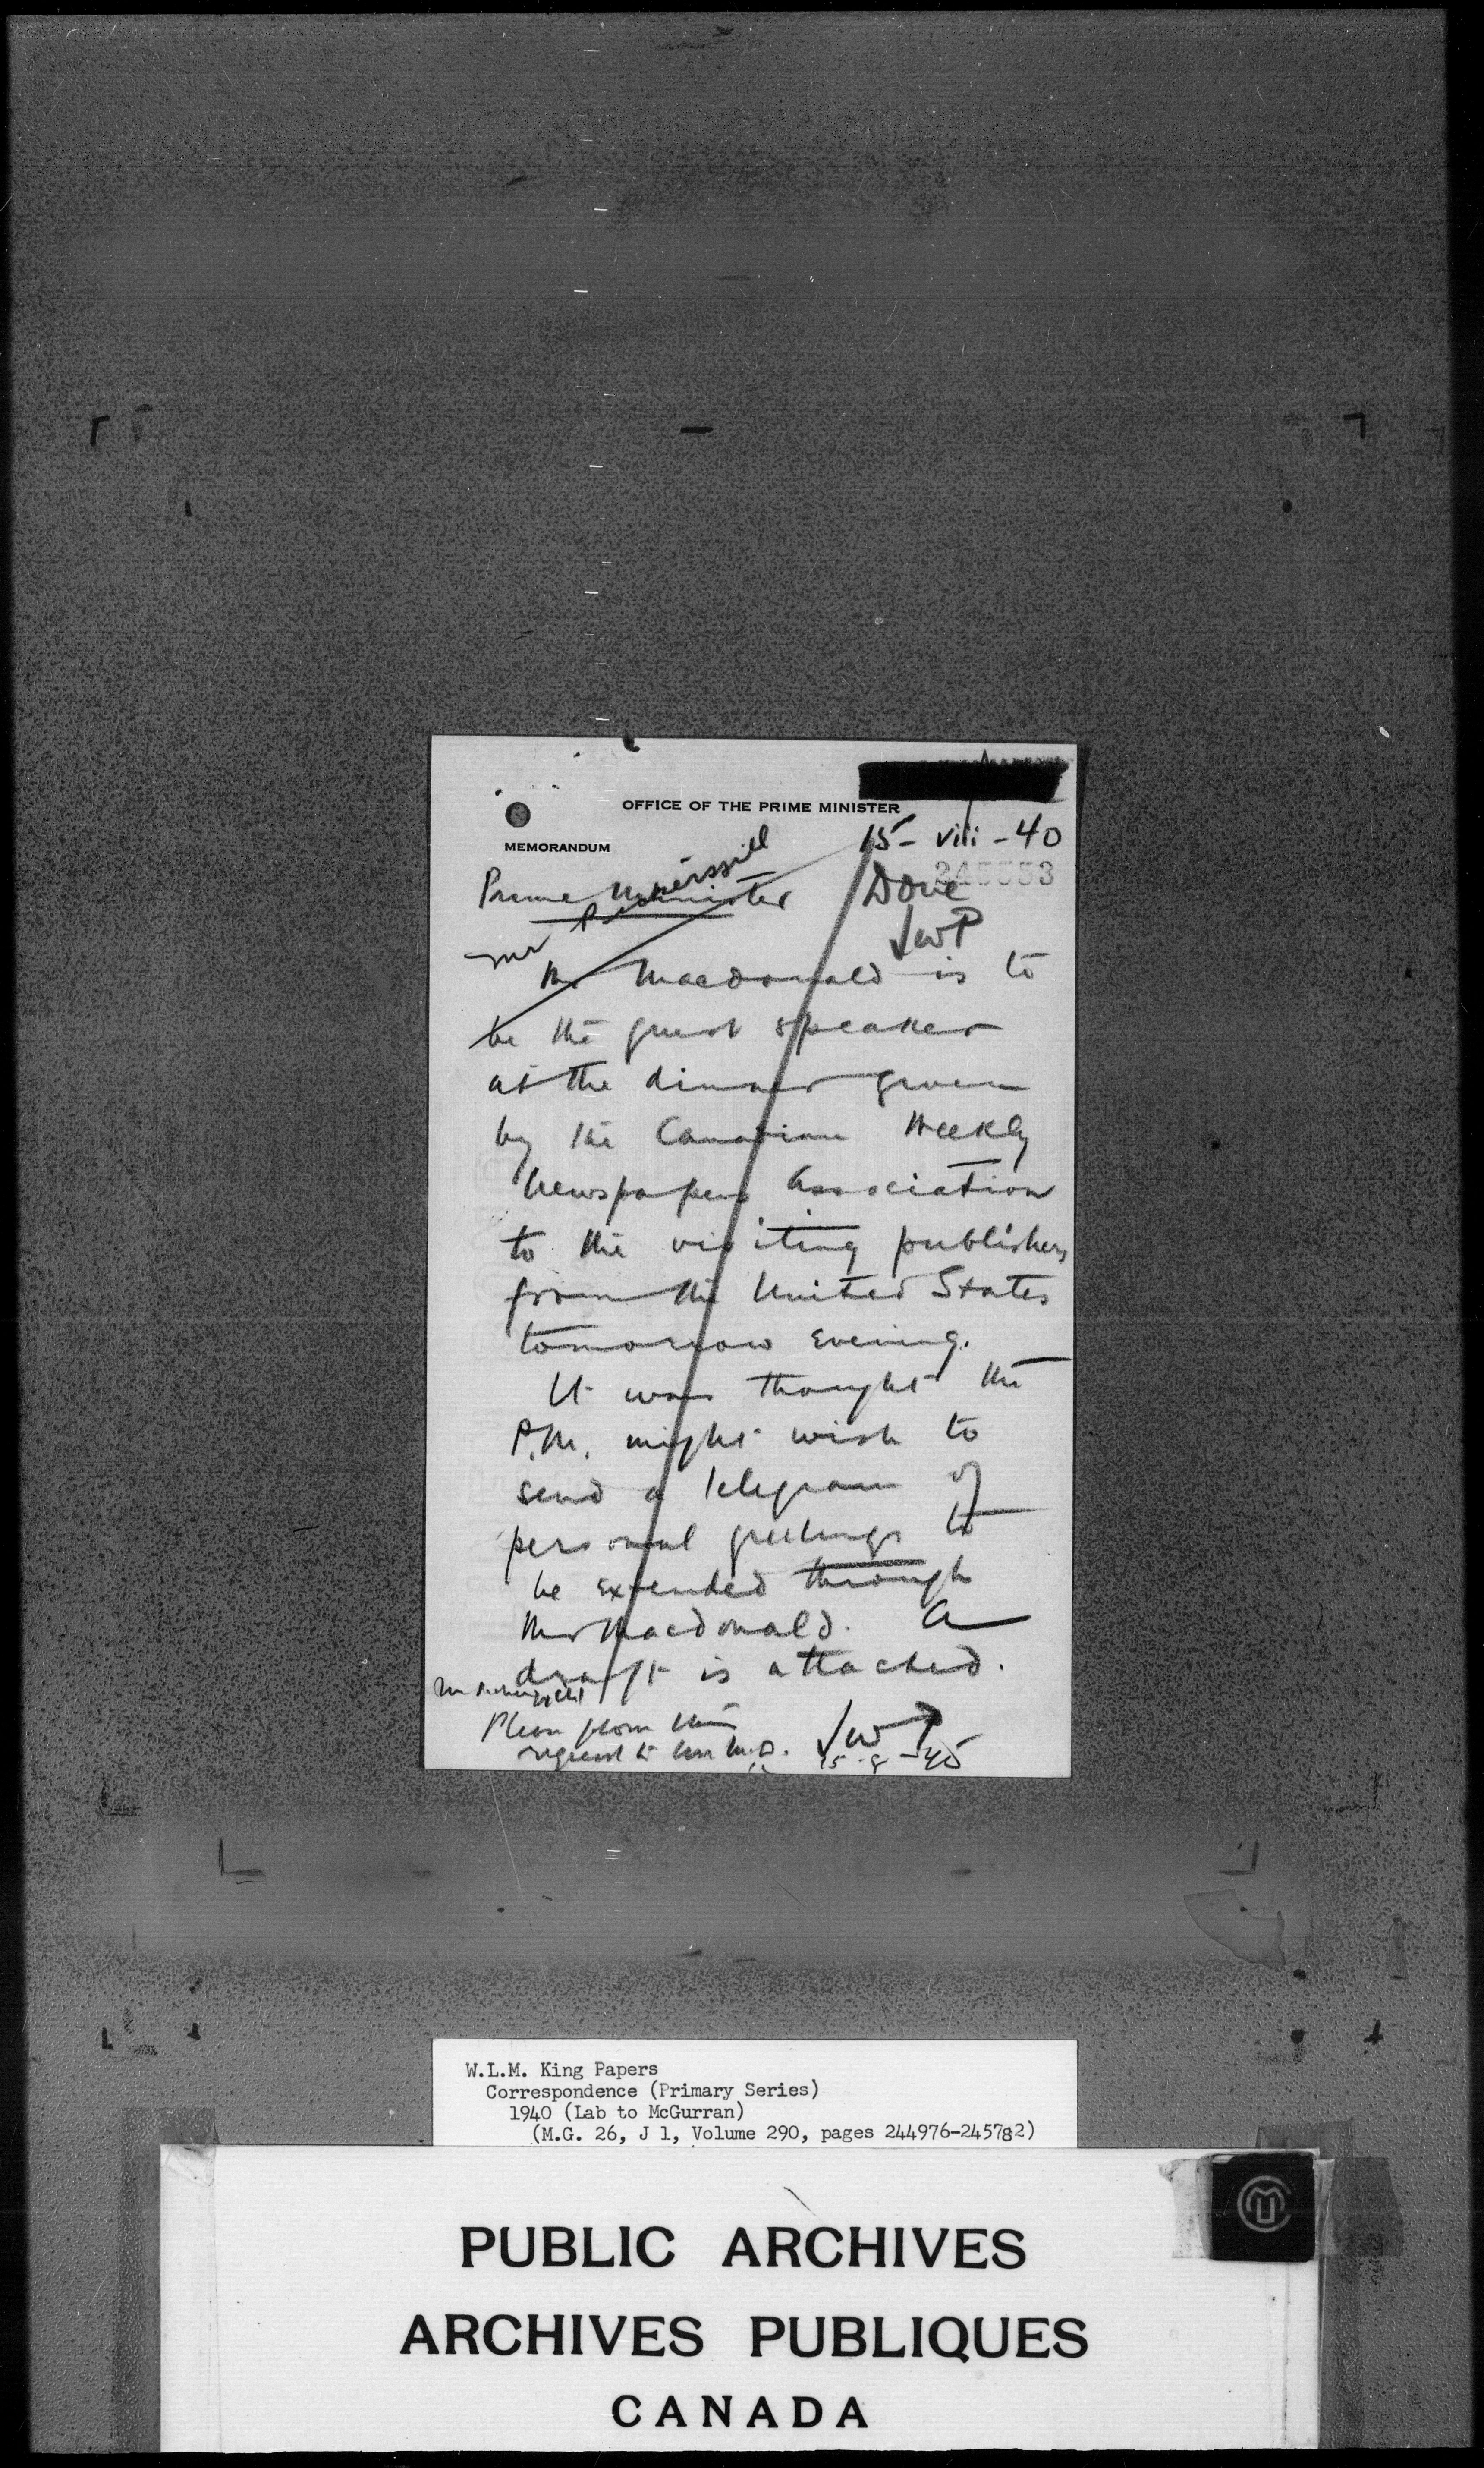 OFFICE OF THE PRIME MINISTER
MEMORANDUM
15 - viii - 40
Prime Minister
Mr Pickersgill
Done
JWP
Mr Macdonald is to
be the guest speaker
at the dinner given
by the Canadian Weekly
Newspapers Association
to the visiting publishers
from the United States
tomorrow evening.
It was thought the
P.M. might wish to
send a telegram of
personal greetings to
be extended through
Mr Macdonald. A
draft is attached.
Mr Pickersgill
Please phone this
request to
JWP
15-8-40
W.L.M. King Papers
Correspondence (Primary Series)
1940 (Lab to McGurran)
(M.G. 26, J 1, Volume 290, pages 244976-245782)
PUBLIC ARCHIVES
ARCHIVES PUBLIQUES
CANADA